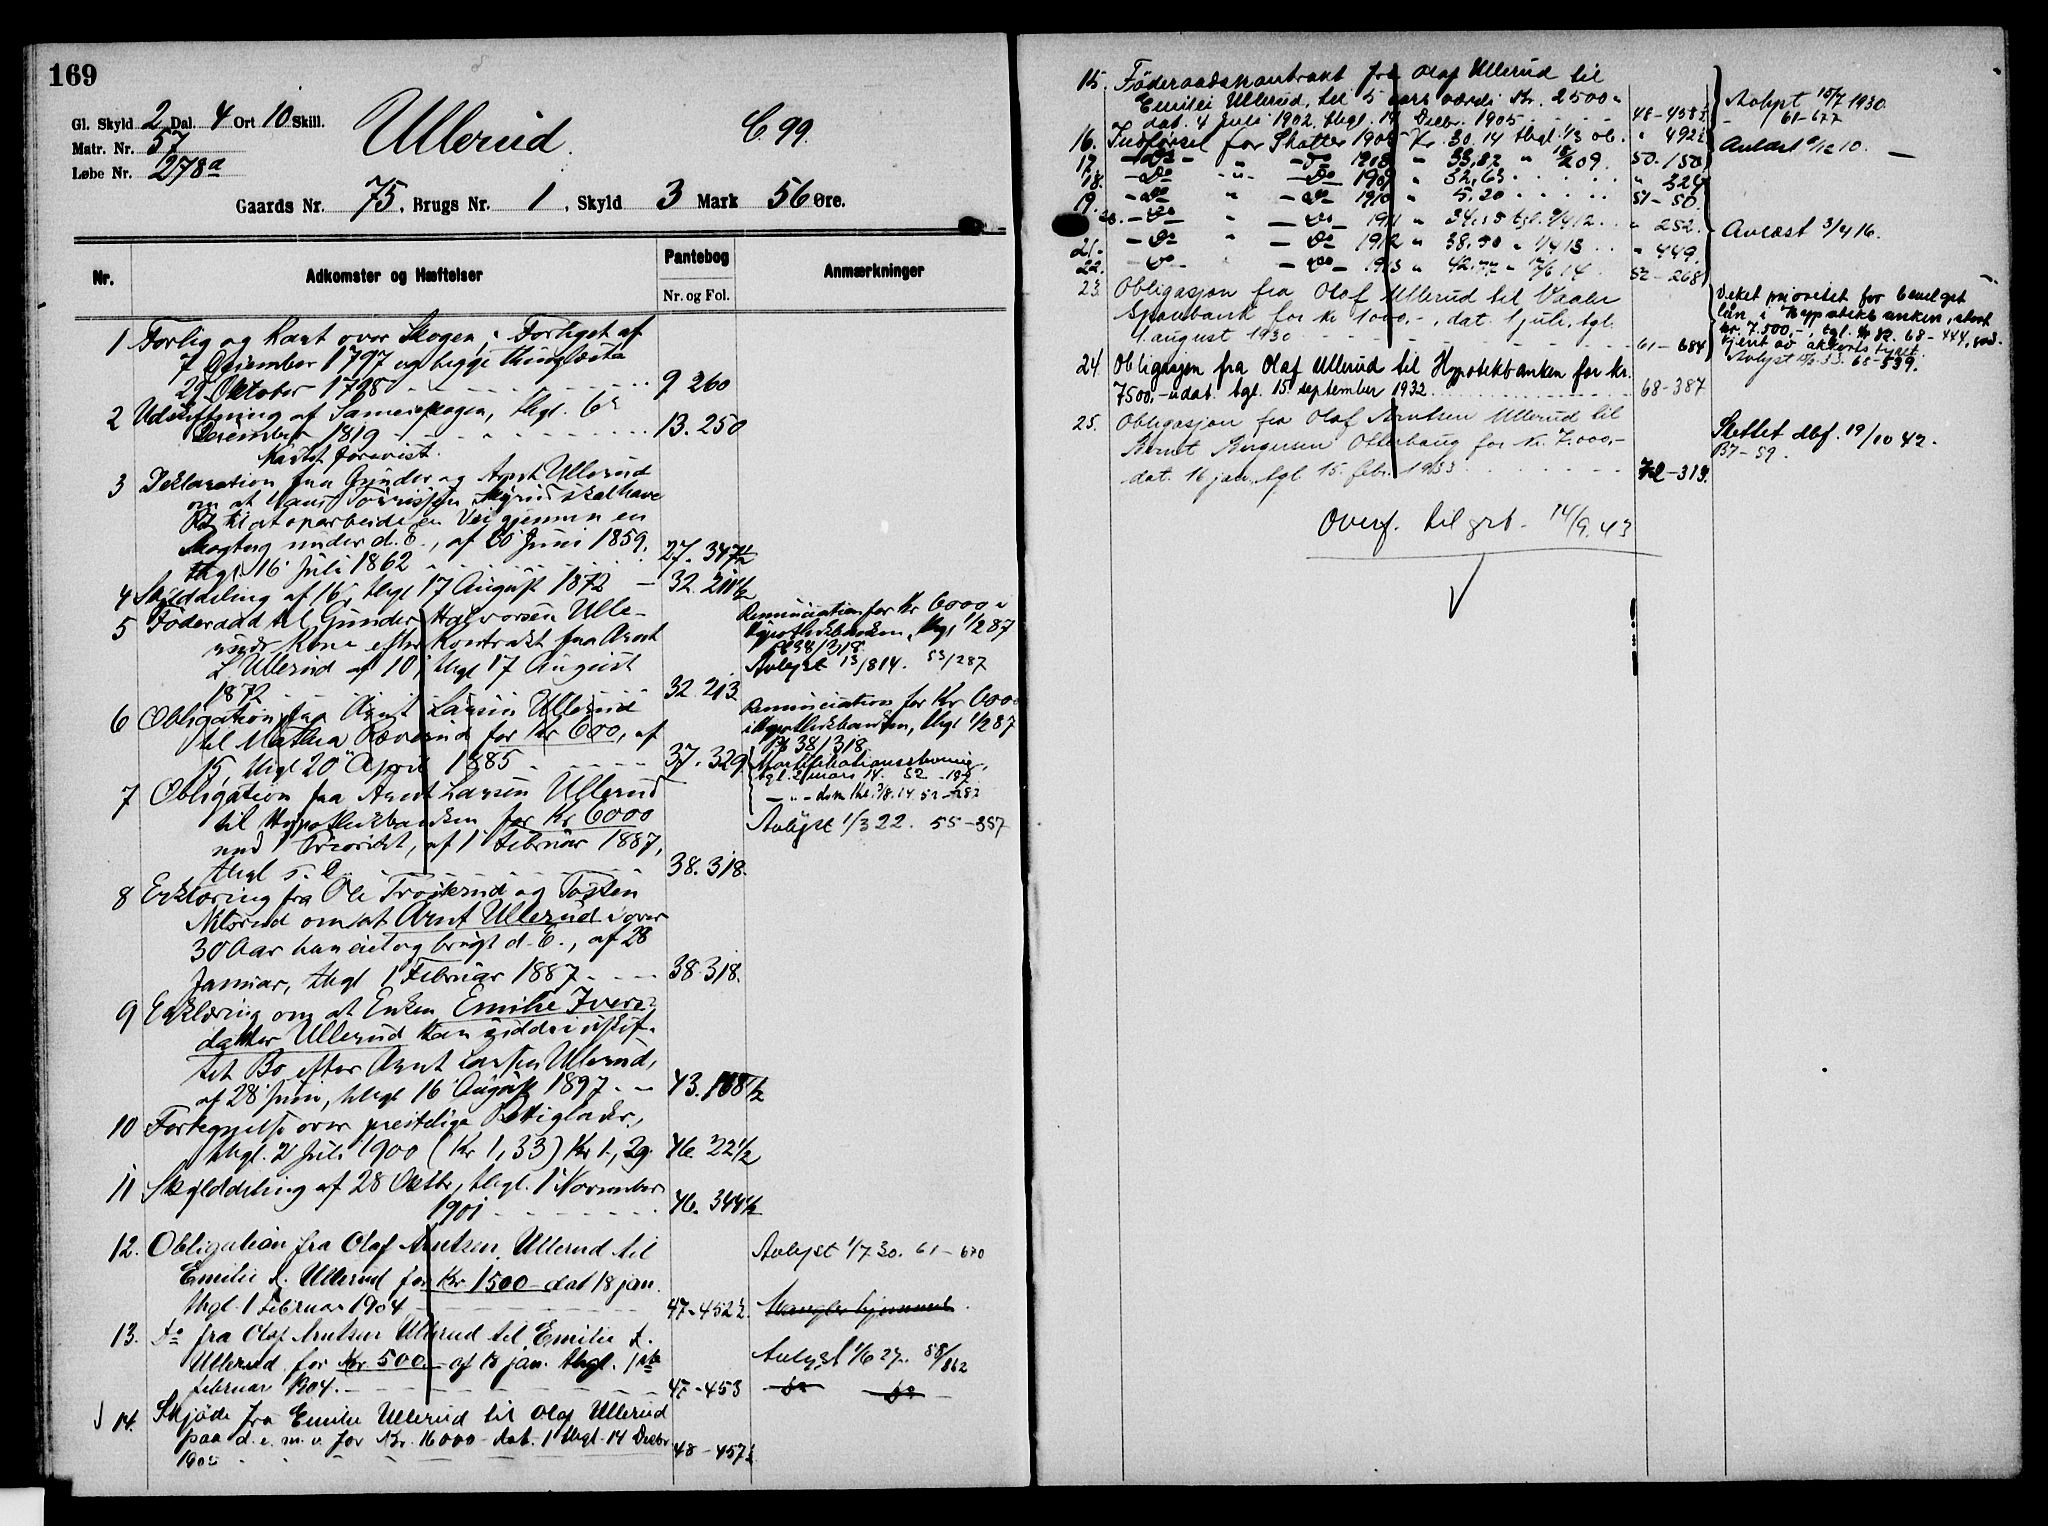 169
Gl. Skyld 2 Dal. 4 Ort 10 Skill.
Matr. Nr. 57
Løbe Nr. 278a
Ullerud.
C. 99.
Gaards Nr. 75, Brugs Nr. 1, Skyld 3 Mark 56 Øre.
Nr. Adkomster og Hæftelser Pantebog Anmærkninger
Nr. og Fol.
1 Forlig og Kart over Skogen; Forliget af
7 December 1797 og begge thinglæste
29 Oktober 1798 9 260
2 Udskiftning af Sameieskogen, thgl. 6
December 1819 13. 250
Kartet forevist.
3 Deklaration fra Gunder og Arnt Ullerud
om at Hans skal have
Ret til at oparbeide en Vei gjennem en
Skogteig under d. E., af 30 Juni 1859.
thgl. 16 Juli 1862 27. 347 1/2
4 Skylddeling af 16, thgl 17 August 1872 32. 211 1/2
5 Føderaad til Gunder Halvorsen Ulle-
ruds Kone efter Kontrakt fra Arnt
L Ullerud af 10, thgl 17 August
1872 32. 213
Renunciation for Kr 6000 i
Hypothekbanken, thgl 1/2 87
38/318.
Avlyst 13/8 14. 53/287
6 Obligation fra Arnt Larsen Ullerud
til Mathea Ræverud for Kr 600, af
15, thgl 20 April 1885 37. 329
Renunciation for Kr 6000
i Hypothekbanken, thgl 1/2 87
38/318
Mortifikationsstevning,
tgl. 2 mars 14. 52
7 Obligation fra Arnt Larsen Ullerud
til Hypothekbanken for Kr 6000
med 1 Prioritet, af 1 Februar 1887,
thgl s. D. 38. 318.
Avlyst 1/3 22. 55-357
8 Erklæring fra Ole Trøskerud og Tosten
om at Arnt Ullerud i over
30 Aar har eiet og brugt d. E., af 28
Januar, thgl 1 Februar 1887 38. 318.
9 Erklæring om at Enken Emilie Ivers-
datter Ullerud kan sidde i uskif-
tet Bo efter Arnt Larsen Ullerud,
af 28 Juni, thgl 16 August 1897 43. 168 1/2
10 Fortegnelse over
thgl. 21 Juli 1900 (Kr 1,33) Kr 1,29. 46. 22 1/2
11 Skylddeling af 28 Oktbr, thgl. 1 November
1901 46. 344 1/2
12. Obligation fra Olaf Arntsen Ullerud til
Emilie I. Ullerud for Kr. 1500 dat 18 jan.
thgl. 1 Februar 1904 47-452 1/2
Avlyst 1/7 30. 61-670
13. Do fra Olaf Arntsen Ullerud til Emilie I.
Ullerud for Kr. 500 af 18 jan. thgl. 1ste
februar 1904. 47-453
Avlyst 1/6 27. 58/862
14. Skjøde fra Emilie Ullerud til Olaf Ullerud
paa d. e. m. v. for Kr. 16000 dat. 1 thgl. 14 Decbr
1905 48-457 1/2
15. Føderaadskontrakt fra Olaf Ullerud til
Emilie Ullerud, til 5 aars værdi Kr. 2500
dat. 4 Juli 1902. thgl. 14 Decbr. 1905 48-458 1/2
Avlyst 15/7 1930.
61-677
16. Indførsel for Skatter 1905 Kr. 30.14 thgl. " 492 1/2
Avlæst 10.
17. -Do- " -Do- 1908 " 33,82 " 50. 150
18. -Do- -"- -Do- 1909 " 32,63 " 324
19. -Do- " -Do- 1910 " 5.20 51-50.
20. -Do- " -Do- 1911 " " 252.
Avlæst 3/4 16.
21. -Do- -Do- 1912 " 38.50 " 449.
22. -Do- -Do- 1913 " 42.77 " 52-268
23. Obligasjon fra Olaf Ullerud til Vaaler
Sparebank for kr 1000.-, dat. 1 juli, tgl.
1 august 1930 61-684
Veket prioritet for bevilget
lån i Hypotekbanken, stort
kr. 7.500,-, tgl. 68-444,
Avlyst 33. 68-539.
24 Obligasjon fra Olaf Ullerud til Hypotekbanken for kr.
7500.- udat. tgl. 15 september 1932. 68-387
25. Obligasjon fra Olaf Arntsen Ullerud til
Bernt Otterhaug for kr. 7.000,-
dat. 16 jan. tgl. 15. febr. 1933 72-313
Slettet dbf. 19/10 42.
B7-59.
Overf. til grb. 14/9. 43